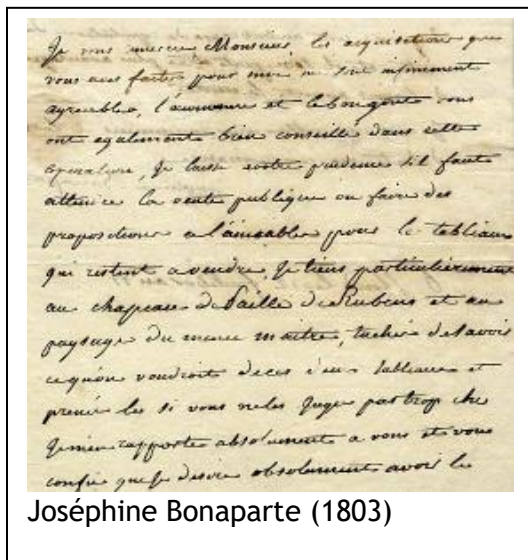 Je vous remercie Monsieur, les acquisitions que
vous avez faites pour moi me sont infiniment
agreables, l'economie et le bon gout vous
ont egalement bien conseillé dans cette
operation, je laisse votre prudence s'il faut
attendre la vente publique ou faire des
propositions a l'amiable pour le tableaux
qui restent a vendre. Je tiens particulierement
au chapeau de Paille de Rubens et au
paysage du meme maitre, tachés de savoir
ce qu'on voudroit de ces deux tableaux et
prenés les si vous ne les jugés pas trop cher
Je m'en rapporte absolument a vous et vous
confie que je desire absolument avoir le
Joséphine Bonaparte (1803)